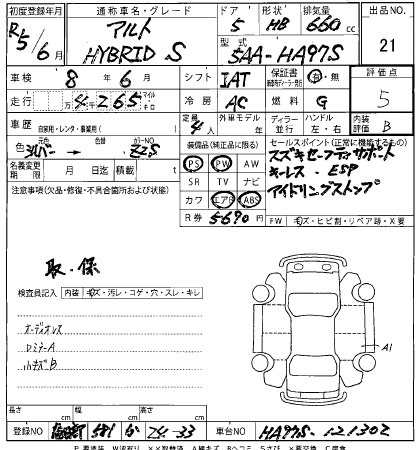 初度登録年月 通称車名・グレード ドア 形状 排気量 出品NO.
R5/6月 アルト HYBRID S 5 HB 660cc 21
型式 5AA-HA97S
車検 8年 6月 シフト IAT 保証書 有・無 評価点
走行 4千265 マイル キロ 冷房 AC 燃料 G 5
車歴 自家用・レンタ・事業用( ) 定員 4人 外車モデル 年 ディーラー 並行 ハンドル 左・右 内装評価 B
色 元色 シルバー 色替 カラーNO Z2S 装備品(純正品に限る) セールスポイント(正常に機能するもの)
名義変更期限 月 日迄 積載 t PS PW AW スズキセーフティサポート
注意事項(欠品・修復・不具合箇所および状態) SR TV ナビ キーレス・ESP
カワ エアB ABS アイドリングストップ
R券 5690 FW キズ・ヒビ割・リペア跡・X要
取・保
検査員記入 内装 キズ・汚レ・コゲ・穴・スレ・キレ
オーディオレス
小キズB
A1
長さ cm 幅 cm 高さ cm
登録NO 581 24-33 車台NO HA97S-121302